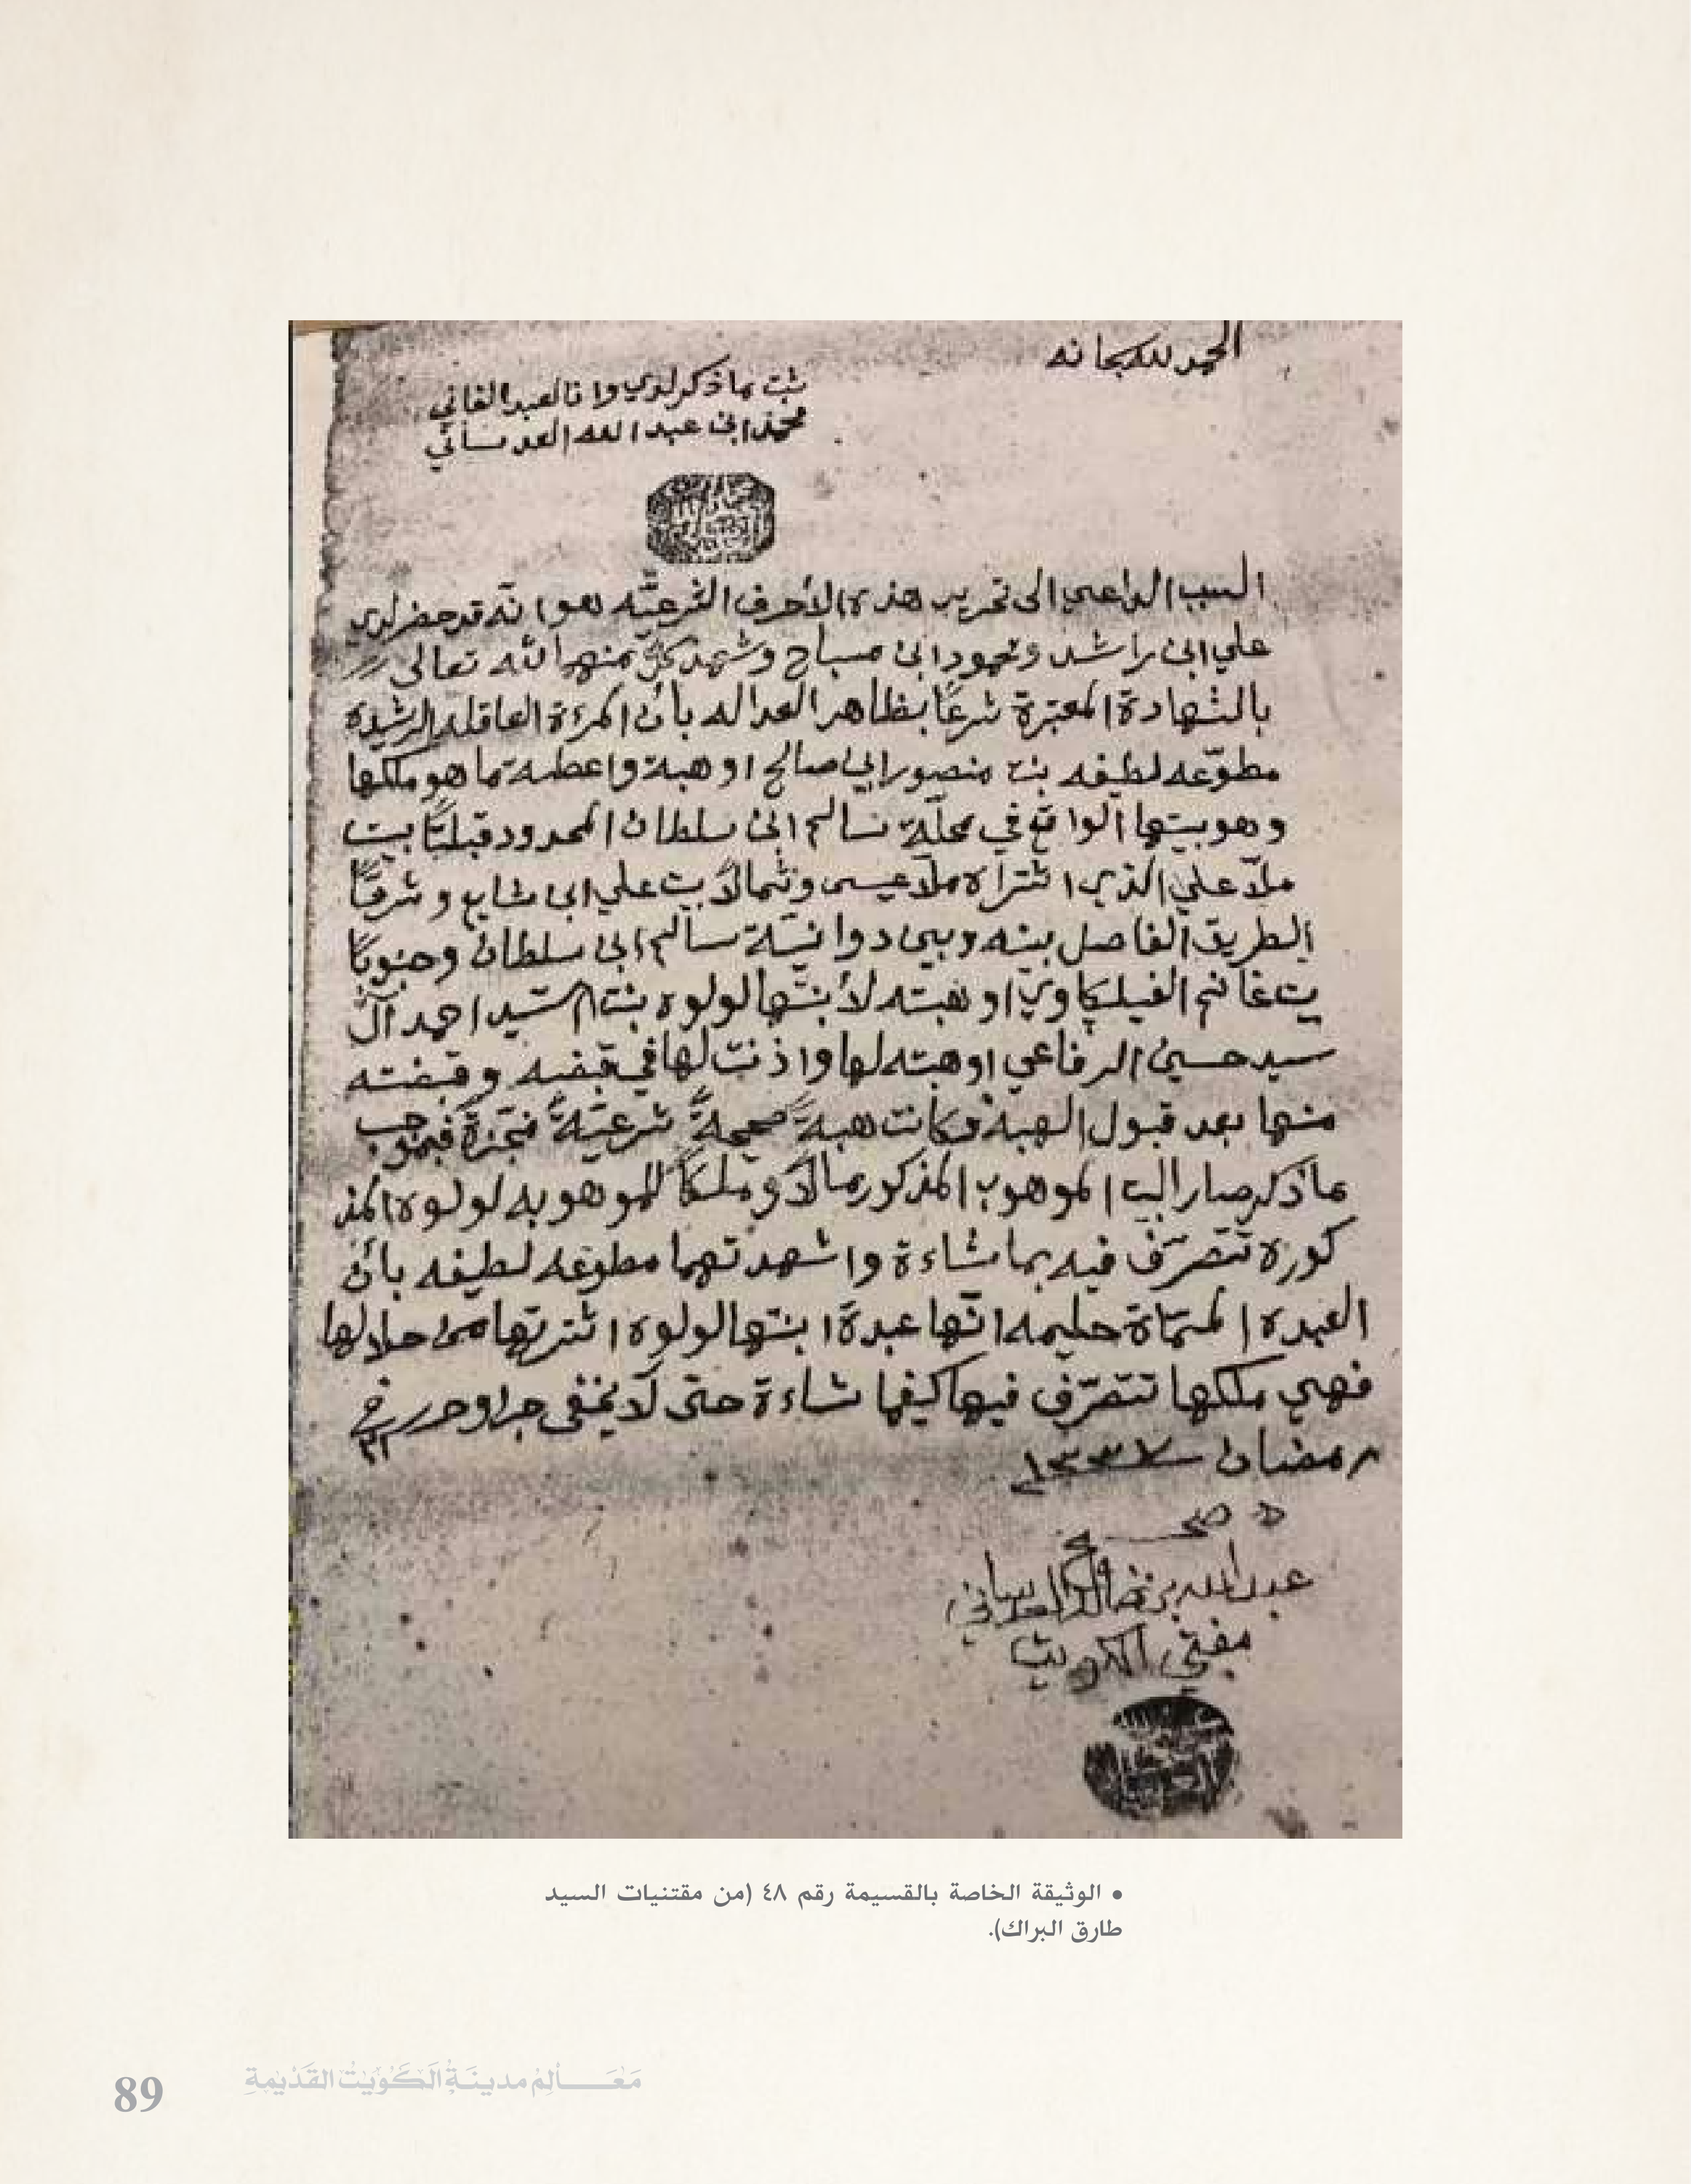 الحمد لله سبحانه
ثبت ما ذكر لدي وانا العبد الفاني
محمد ابن عبد الله العدساني
السبب الداعي الى تحرير هذه الأحرف الشرعيّه هو انّه قد حضر لدي
علي ابن راشد و ابن مسباح وشهد كلّ منهما لله تعالى
بالشهادة المعتبرة شرعًا بظاهر العداله بأن المرءة العاقله الرشيده
مطوّعه لطيفه بنت منصور ابن صالح اوهبة واعطة ما هو ملكها
وهو بيتها الواقع في محلّة سالم ابن سلطان المحدود قبلتًا بيت
ملّا علي الذي اشتراه ملّا عيسى وشمالاً بيت علي ابن شايع وشرقيًّا
الطريق الفاصل بينه وبين دوانيّة سالم ابن سلطان وجنوبًا
بيت غانم الفيلكاوي اوهبته لأبنتها لولوه بنت السّيد احمد آل
سيد حسين الرفاعي اوهبته لها واذنت لها في قبضه وقبضته
منها بعد قبول الهبه فكانت هبةً صحيحةً شرعيّةً منجّزةً فبموجب
ما ذكر صار البيت الموهوب المذكور مالاً وملكاً للموهوبه لولوه المذ
كوره تتصرّف فيه بما شاءة واشهدتهما مطوعه لطيفه بأن
العبده المسمّاة حليمه انّها عبدة ابنتها لولوه اشترتها من حلالها
فهي ملكها تتصرّف فيها كيفما شاءة حتى لا يخفى جرا وحرر في ٢١
رمضان ١٣٣٧
صح
عبدالله بن خالد العدساني
مفتي الكويت
• الوثيقة الخاصة بالقسيمة رقم ٤٨ (من مقتنيات السيد
طارق البراك).
مَعَالِمْ مدينَةُ الكُوَيْتُ القَدْيمةِ
89